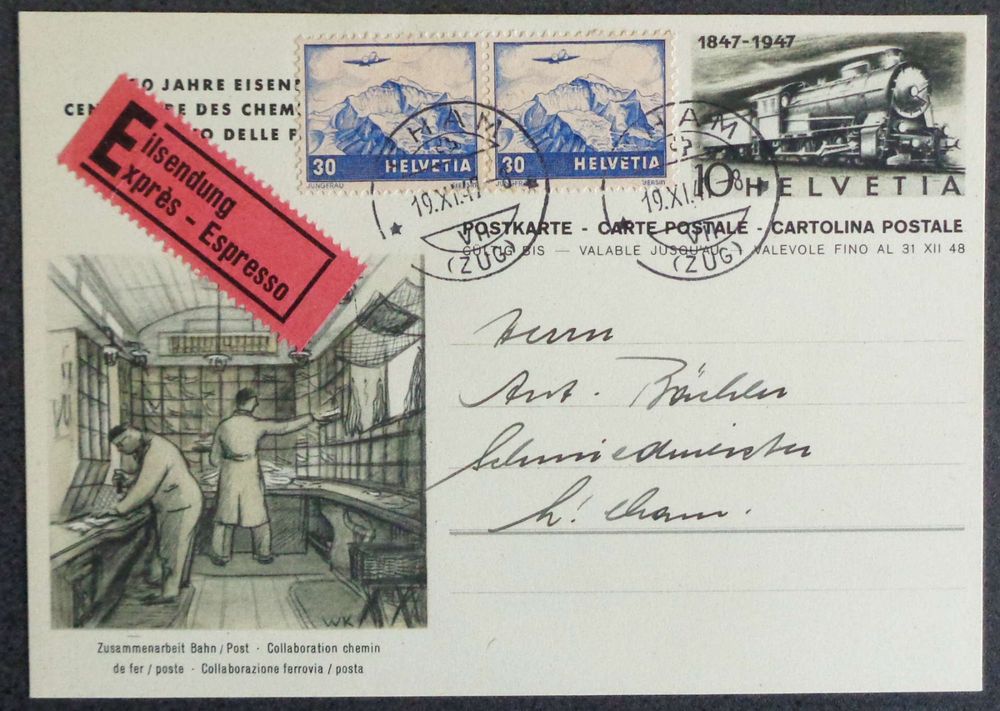 1847-1947
0 JAHRE EISEN
CEN RE DES CHEM
O DELLE F
Eilsendung
Exprès - Espresso
30 HELVETIA
JUNGFRAU
30 HELVETIA
JUNGFRAU
10 HELVETIA
CHAM
19.XI.47
(ZUG)
CHAM
19.XI.47-8
(ZUG)
POSTKARTE - CARTE POSTALE - CARTOLINA POSTALE
GÜLTIG BIS — VALABLE JUSQU'AU — VALEVOLE FINO AL 31 XII 48
Herrn
Ant. Bächler
Schmiedmeister
Cham.
WK
Zusammenarbeit Bahn / Post · Collaboration chemin
de fer / poste · Collaborazione ferrovia / posta